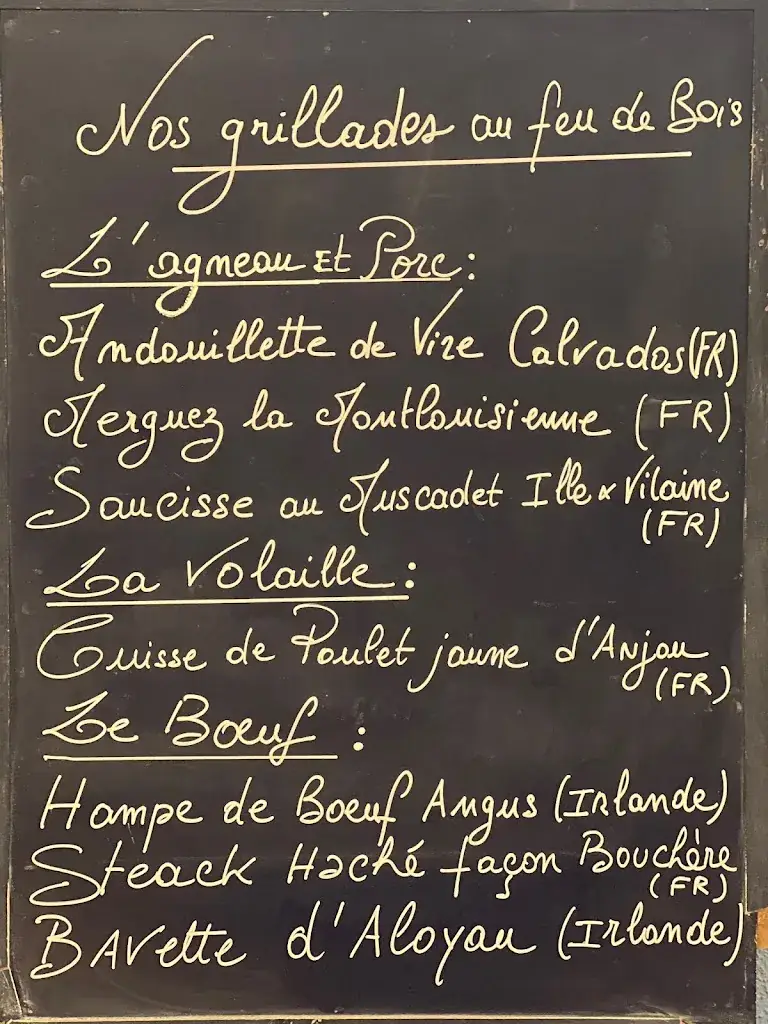 Nos grillades au feu de Bois
L'agneau Et Porc :
Andouillette de Vire Calvados (FR)
Merguez la Montlouisienne (FR)
Saucisse au Muscadet Ille & Vilaine
(FR)
La Volaille :
Cuisse de Poulet jaune d'Anjou
(FR)
Le Bœuf :
Hampe de Boeuf Angus (Irlande)
Steack Haché façon Bouchère
(FR)
Bavette d'Aloyau (Irlande)